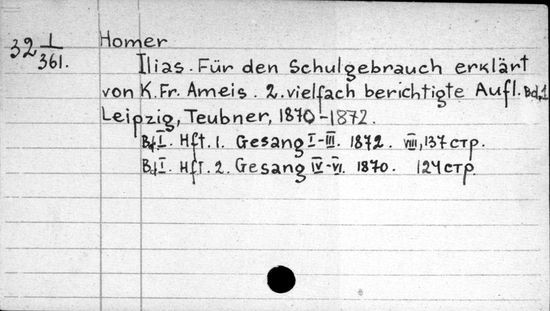 32 1/361.
Homer
Ilias. Für den Schulgebrauch erklärt
von K. Fr. Ameis. 2. vielfach berichtigte Aufl. Bd. 1
Leipzig, Teubner, 1870-1872.
Bd I. Hft. 1. Gesang I-III. 1872. VIII, 137 стр.
Bd I. Hft. 2. Gesang IV-VI. 1870. 124 стр